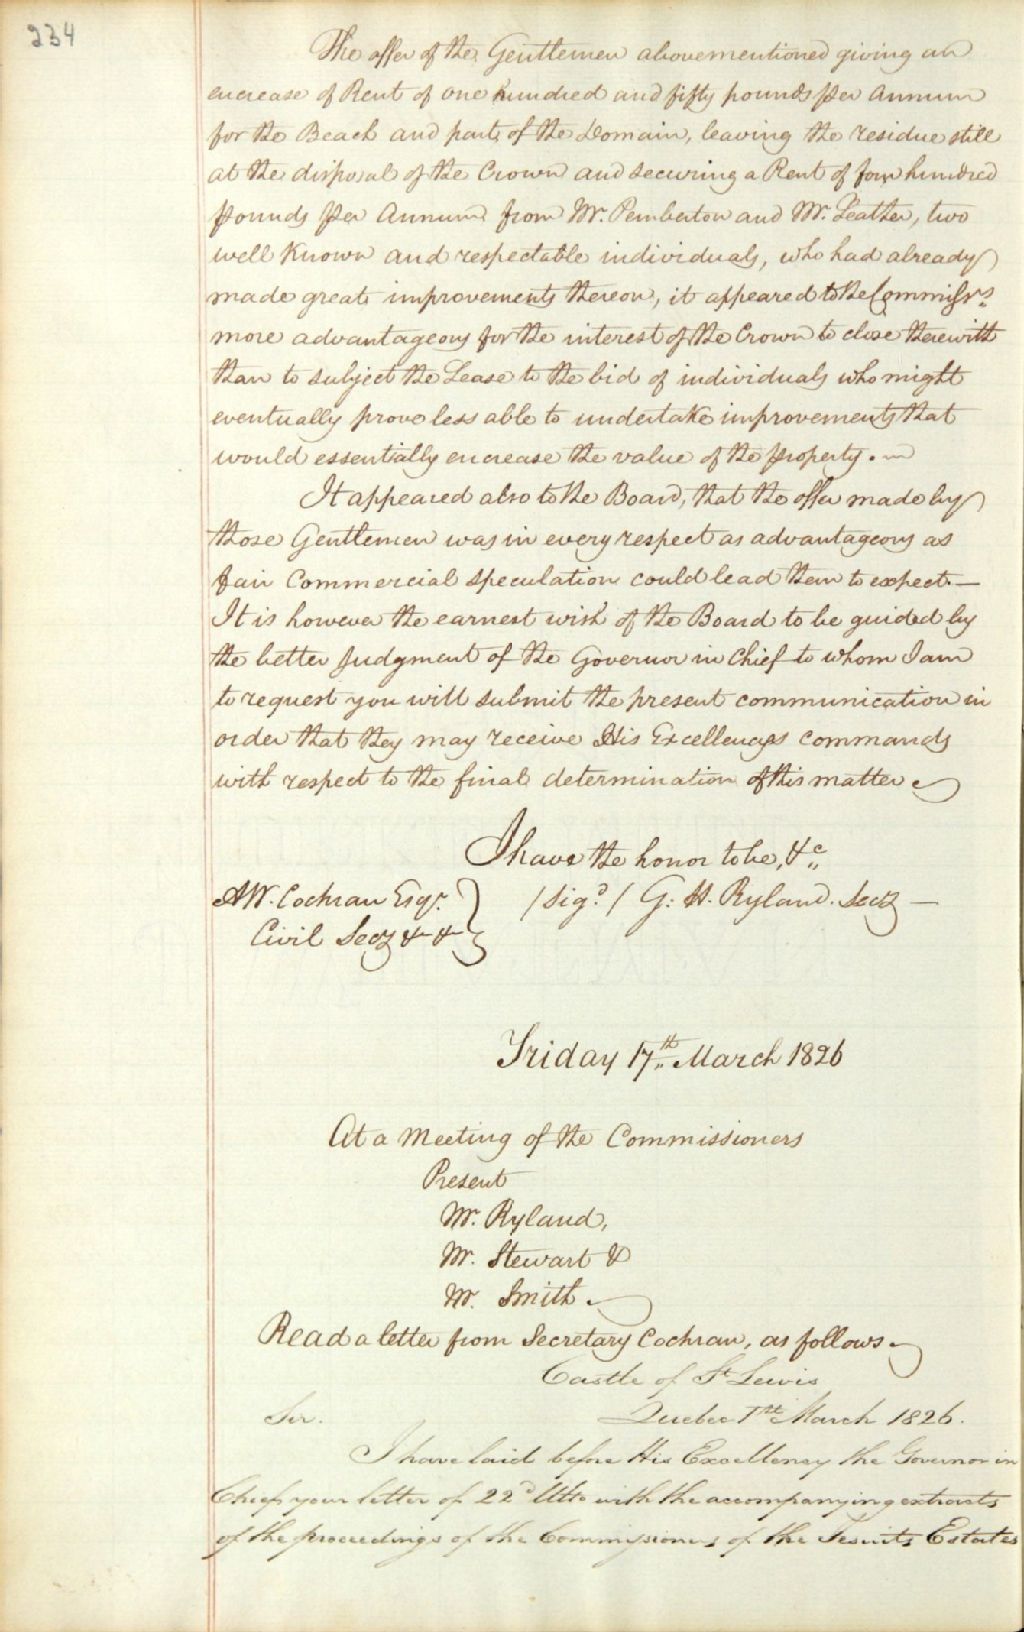 234
The offer of the Gentlemen abovementioned giving an
encrease of Rent of one hundred and fifty pounds per Annum
for the Beach and part of the Domain, leaving the residue still
at the disposal of the Crown and securing a Rent of four hundred
pounds per Annum from Mr. Pemberton and Mr. Leather, two
well known and respectable individuals, who had already
made great improvements thereon, it appeared to the Commissrs.
more advantageous for the interest of the Crown to close therewith
than to subject the Lease to the bid of individuals who might
eventually prove less able to undertake improvements that
would essentially encrease the value of the property.
It appeared also to the Board, that the offer made by
those Gentlemen was in every respect as advantageous as
fair Commercial speculation could lead them to expect. —
It is however the earnest wish of the Board to be guided by
the better Judgment of the Governor in Chief to whom I am
to request you will submit the present communication in
order that they may receive His Excellencys commands
with respect to the final determination of this matter
I have the honor to be, &c
AW. Cochran Esqr. } /sigd/ G: H. Ryland. Secy —
Civil Secy & &
Friday 17th March 1826
At a Meeting of the Commissioners
Present
Mr. Ryland,
Mr. Stewart &
Mr. Smith
Read a letter from Secretary Cochran, as follows
Castle of St Lewis
Sir. Quebec 1st March 1826.
I have laid before His Excellency the Governor in
Chief your letter of 22d Ulto with the accompanying extracts
of the proceedings of the Commissioners of the Jesuits Estates